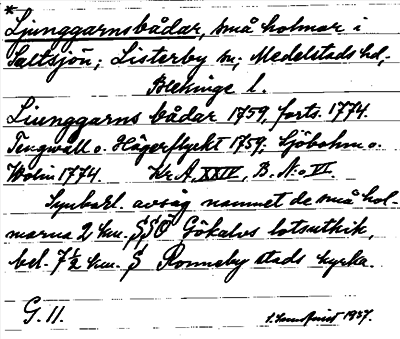 *
Ljunggarnsbådar, små holmar i
Saltsjön; Listerby sn; Medelstads hd,
Blekinge l.
Liunggarns bådar 1759, forts. 1774.
Tengwall o. Hägerflyckt 1759; Sjöbohm o.
Wolin 1774. Kr. A. XXIV, B. N:o VI.
Synbarl. avsåg namnet de små hol-
marna 2 km. SSO Gökalvs lotsutkik,
bel. 7½ km. S Ronneby stads kyrka.
G. 11. 1937.